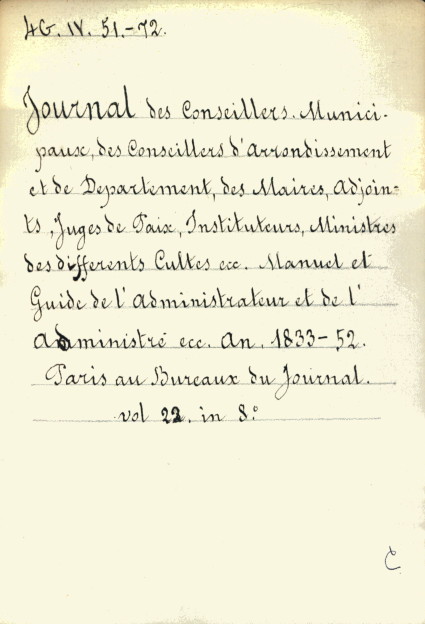 4G. IV. 51.-72.
Journal des Conseillers. Munici-
paux, des Conseillers d'Arrondissement
et de Departement, des Maires, Adjoin-
ts, Juges de Paix, Instituteurs, Ministres
des differents Cultes ecc. Manuel et
Guide de l'Administrateur et de l'
Administré ecc. An. 1833-52.
Paris au Bureaux du Journal.
vol 22. in 8.°
C